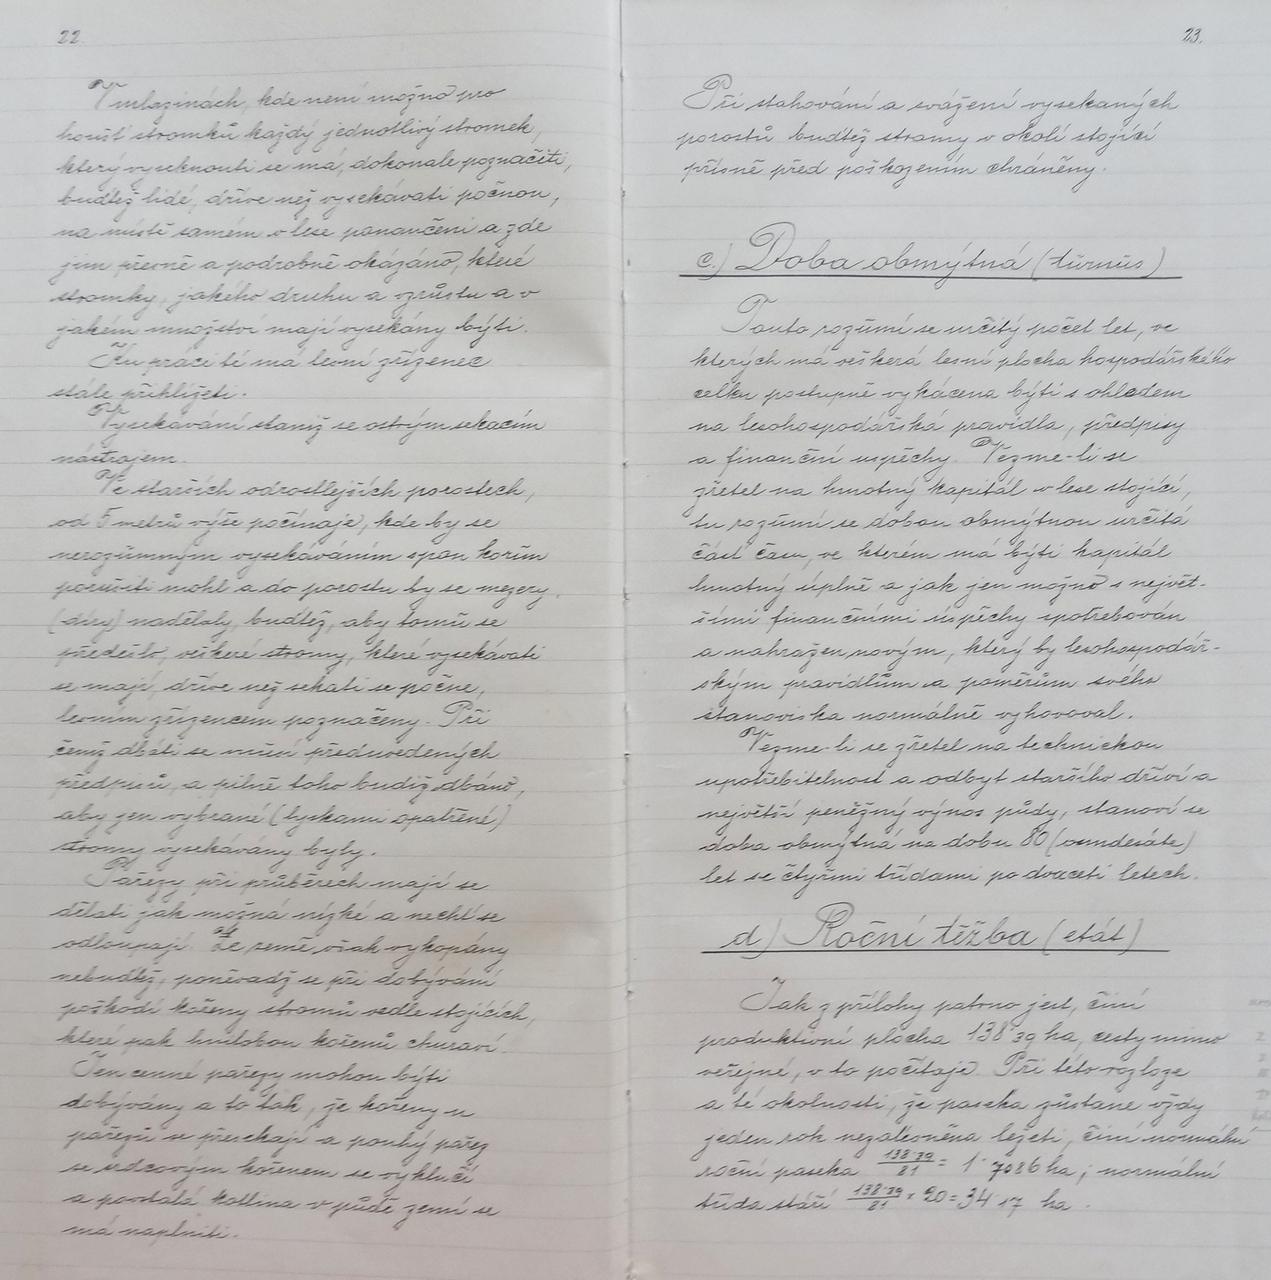 22.
V mlazinách, kde není možno pro
houšť stromků každý jednotlivý stromek,
který vyseknouti se má, dokonale poznačiti,
buďtež lidé, dříve než vysekávati počnou,
na místě samém v lese panaučeni a zde
jim přesně a podrobně okázáno, které
stromky, jakého druhu a vzrůstu a v
jakém množství mají vysekány býti.
Ku práci té má lesní zřízenec
stále přihlížeti.
Vysekávání staniž se ostrým sekacím
nástrojem.
Ve starších odrostlejších porostech,
od 5 metrů výše počínaje, kde by se
nerozumným vysekáváním spon korun
porušiti mohl a do porostu by se mezery,
(díry) nadělaly, buďtež, aby tomu se
předešlo, veškeré stromy, které vysekávati
se mají, dříve než sekati se počne,
lesním zřízencem poznačeny. Při
čemž dbáti se musí předuvedených
předpisů, a pilně toho budiž dbáno,
aby jen vybrané (lyskami opatřené)
stromy vysekávány byly.
Pařezy při průběrech mají se
dělati jak možná nízké a nechť se
odloupají. Ze země však vykopány
nebuďtež, poněvadž se při dobývání
poškodí kořeny stromů vedle stojících,
které pak hnilobou kořenů churaví.
Jen cenné pařezy mohou býti
dobývány a to tak, že kořeny u
pařezů se přesekají a pouhý pařez
se srdcovým kořenem se vyklučí
a povstalá kotlina v půdě zemí se
má naplniti.
23.
Při stahování a svážení vysekaných
porostů buďtež stromy v okolí stojící
přísně před poškozením chráněny.
c.) Doba obmýtná (turnus)
Touto rozumí se určitý počet let, ve
kterých má veškerá lesní plocha hospodářského
celku postupně vykácena býti s ohledem
na lesohospodářská pravidla, předpisy
a finanční úspěchy. Vezme-li se
zřetel na hmotný kapitál v lese stojící,
tu rozumí se dobou obmýtnou určitá
část času, ve kterém má býti kapitál
hmotný úplně a jak jen možno s největ-
šími finančními úspěchy spotřebován
a nahražen novým, který by lesohospodář-
ským pravidlům a poměrům svého
stanoviska normálně vyhovoval.
Vezme-li se zřetel na technickou
upotřebitelnost a odbyt staršího dříví a
největší peněžný výnos půdy, stanoví se
doba obmýtná na dobu 80 (osmdesáte)
let se čtyřmi třídami po dvaceti letech.
d) Roční těžba (etát)
Jak z přílohy patrno jest, činí
produktivní plocha 138·39 ha, cesty mimo
veřejné, v to počítaje. Při této rozloze
a té okolnosti, že paseka zůstane vždy
jeden rok nezalesněna ležeti, činí normální
roční paseka 138·39/81 = 1·7086 ha; normální
třída stáří 138·39/81 × 20 = 34·17 ha.